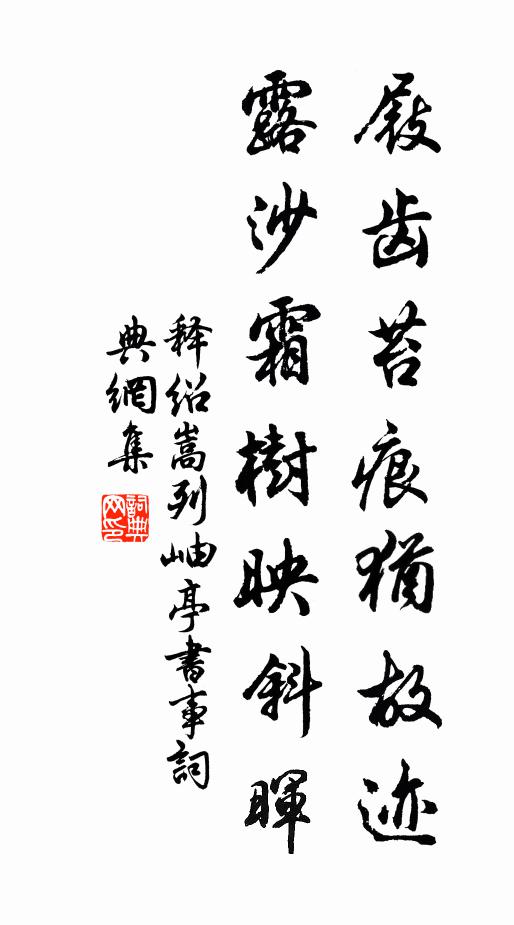 屐齿苔痕犹故迹
露沙霜樹映斜暉
释绍嵩列岫亭書事詞
典網集
詞典网印